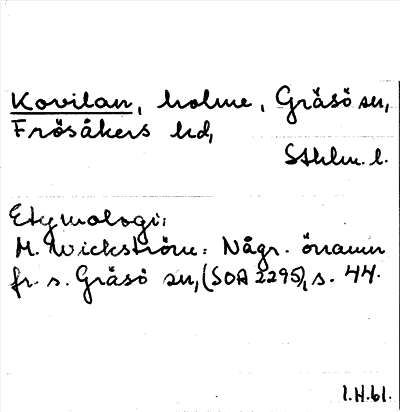 Kovilan, holme, Gräsö sn,
Frösåkers hd,
Sthlm. l.
Etymologi:
M. Wickström: Någr. önamn
fr. s. Gräsö sn, (SOA 2295), s. 44.
l.H.bl.